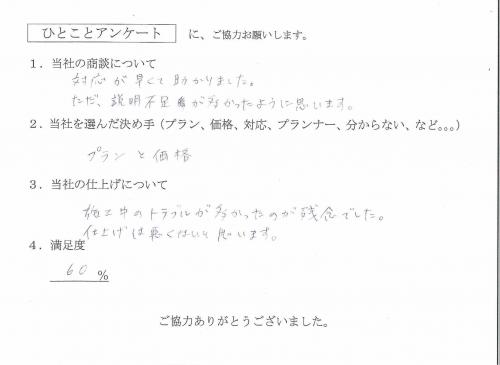 ひとことアンケート に、ご協力お願いします。
1．当社の商談について
対応が早くて助かりました。
ただ、説明不足が多かったように思います。
2．当社を選んだ決め手（プラン、価格、対応、プランナー、分からない、など。。。）
プランと価格
3．当社の仕上げについて
施工中のトラブルが多かったのが残念でした。
仕上げは悪くはないと思います。
4．満足度
60 %
ご協力ありがとうございました。